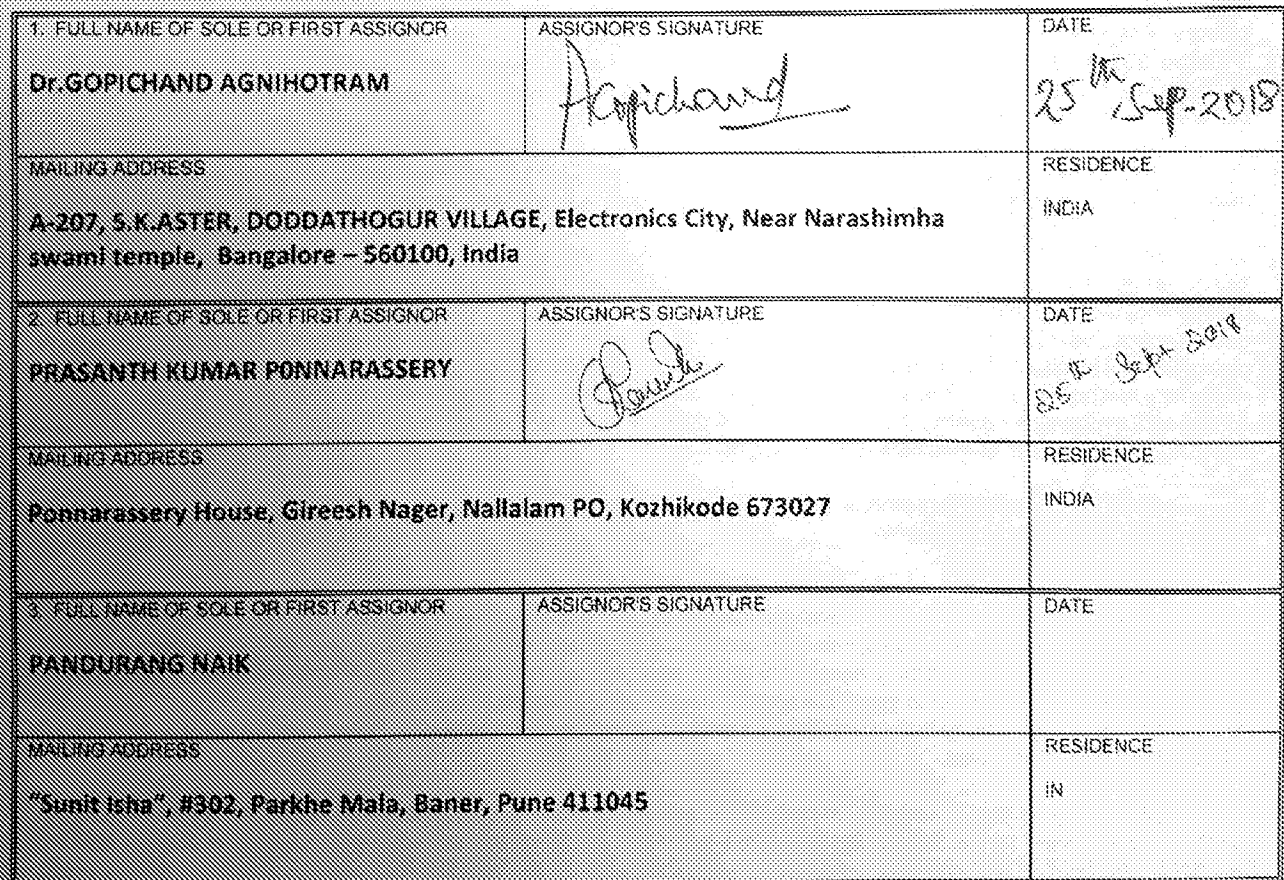 1. FULL NAME OF SOLE OR FIRST ASSIGNOR
Dr.GOPICHAND AGNIHOTRAM
ASSIGNOR'S SIGNATURE
AGopichand
DATE
25th Sep-2018
MAILING ADDRESS
A-207, S.K.ASTER, DODDATHOGUR VILLAGE, Electronics City, Near Narashimha
swami temple, Bangalore – 560100, India
RESIDENCE
INDIA
2. FULL NAME OF SOLE OR FIRST ASSIGNOR
PRASANTH KUMAR PONNARASSERY
ASSIGNOR'S SIGNATURE
DATE
25th Sept 2018
MAILING ADDRESS
Ponnarassery House, Gireesh Nager, Nallalam PO, Kozhikode 673027
RESIDENCE
INDIA
3. FULL NAME OF SOLE OR FIRST ASSIGNOR
PANDURANG NAIK
ASSIGNOR'S SIGNATURE
DATE
MAILING ADDRESS
"Sunit Isha", #302, Parkhe Mala, Baner, Pune 411045
RESIDENCE
IN